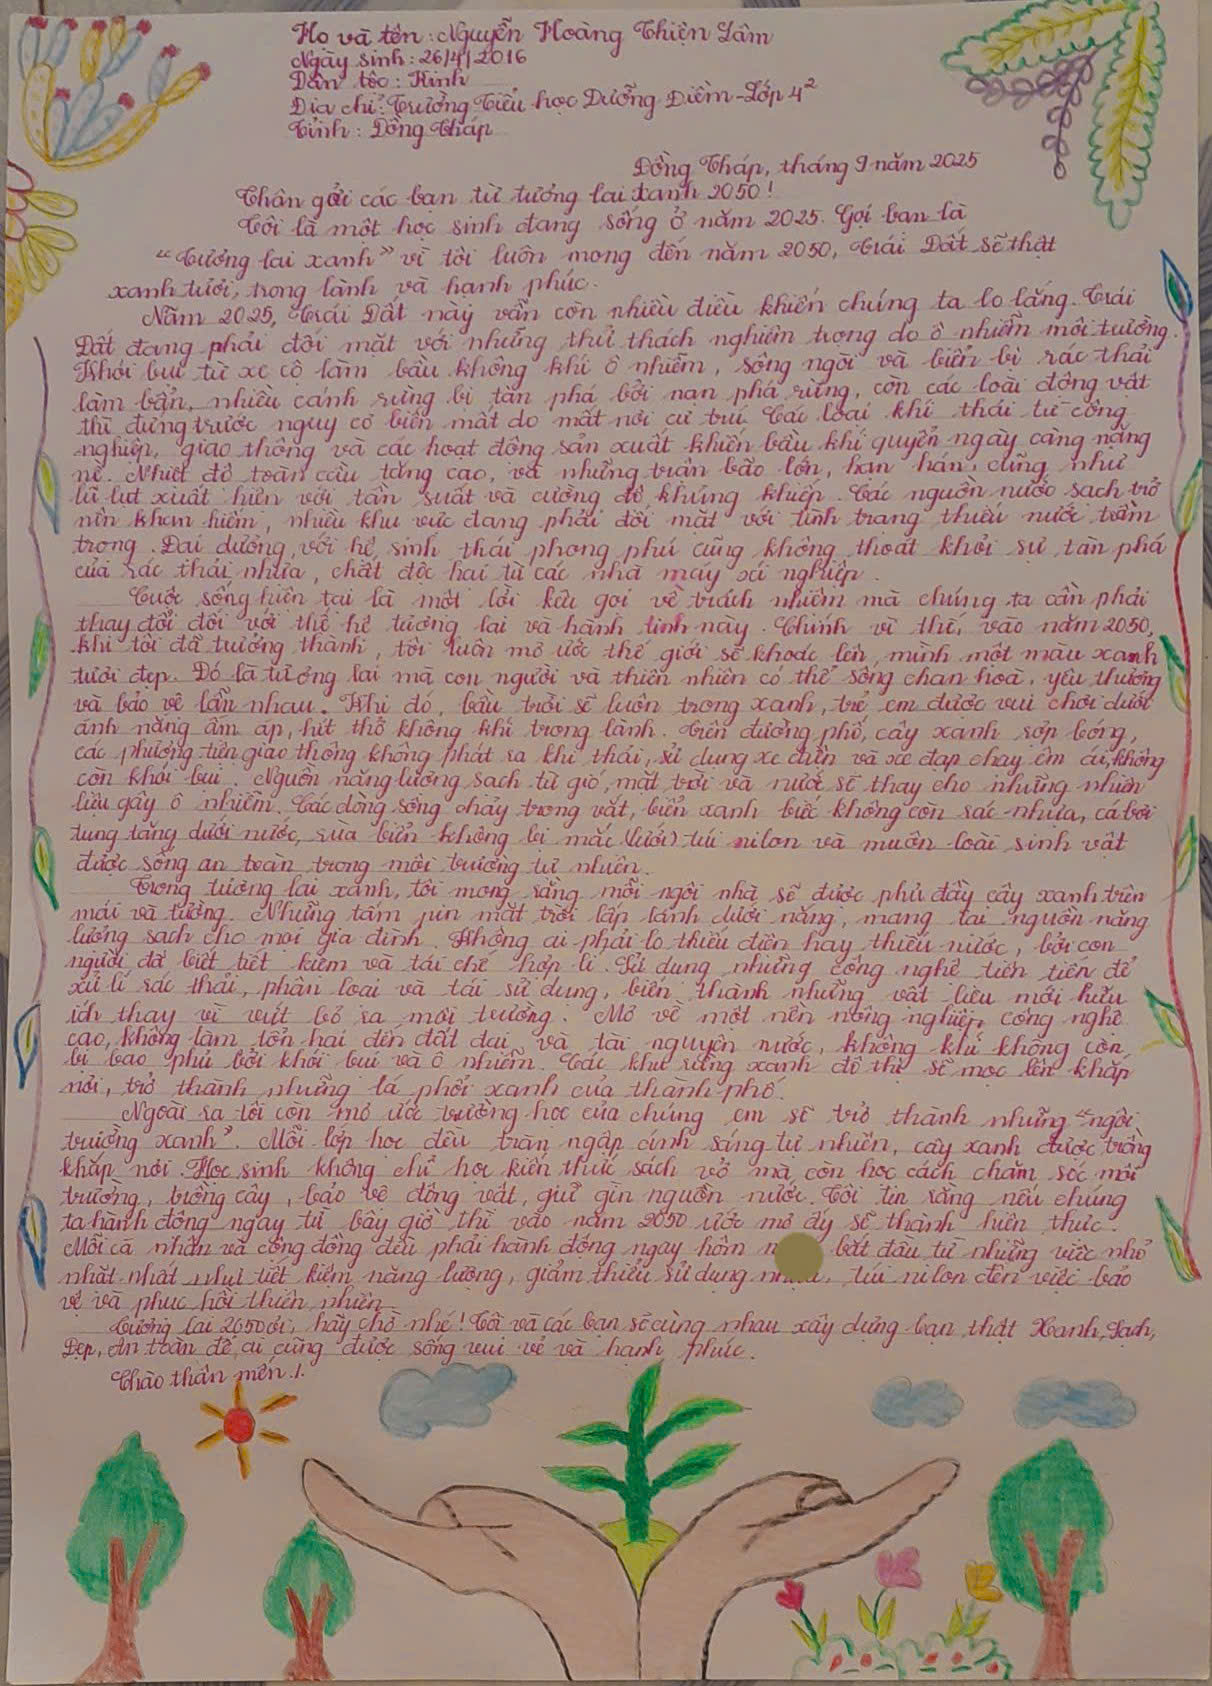 Họ và tên: Nguyễn Hoàng Thiện Lâm
Ngày sinh: 26/4/2016
Dân tộc: Kinh
Địa chỉ: Trường Tiểu học Dưỡng Điềm-Lớp 4²
Tỉnh: Đồng Tháp
Đồng Tháp, tháng 9 năm 2025
Thân gởi các bạn từ tương lai xanh 2050!
Tôi là một học sinh đang sống ở năm 2025. Gọi bạn là
"Tương lai xanh" vì tôi luôn mong đến năm 2050, Trái Đất sẽ thật
xanh tươi, trong lành và hạnh phúc.
Năm 2025, Trái Đất này vẫn còn nhiều điều khiến chúng ta lo lắng. Trái
Đất đang phải đối mặt với những thử thách nghiêm trọng do ô nhiễm môi trường.
Khói bụi từ xe cộ làm bầu không khí ô nhiễm, sông ngòi và biển bị rác thải
làm bẩn, nhiều cánh rừng bị tàn phá bởi nạn phá rừng, còn các loài động vật
thì đứng trước nguy cơ biến mất do mất nơi cư trú. Các loại khí thải từ công
nghiệp, giao thông và các hoạt động sản xuất khiến bầu khí quyển ngày càng nặng
nề. Nhiệt độ toàn cầu tăng cao, và những trận bão lớn, hạn hán, cũng như
lũ lụt xuất hiện với tần suất và cường độ khủng khiếp. Các nguồn nước sạch trở
nên khan hiếm, nhiều khu vực đang phải đối mặt với tình trạng thiếu nước trầm
trọng. Đại dương, với hệ sinh thái phong phú cũng không thoát khỏi sự tàn phá
của rác thải nhựa, chất độc hại từ các nhà máy xí nghiệp.
Cuộc sống hiện tại là một lời kêu gọi về trách nhiệm mà chúng ta cần phải
thay đổi đối với thế hệ tương lai và hành tinh này. Chính vì thế, vào năm 2050,
khi tôi đã trưởng thành, tôi luôn mơ ước thế giới sẽ khoác lên mình một màu xanh
tươi đẹp. Đó là tương lai mà con người và thiên nhiên có thể sống chan hoà, yêu thương
và bảo vệ lẫn nhau. Khi đó, bầu trời sẽ luôn trong xanh, trẻ em được vui chơi dưới
ánh nắng ấm áp, hít thở không khí trong lành. Trên đường phố, cây xanh rợp bóng,
các phương tiện giao thông không phát ra khí thải, sử dụng xe điện và xe đạp chạy êm ái, không
còn khói bụi. Nguồn năng lượng sạch từ gió, mặt trời và nước sẽ thay cho những nhiên
liệu gây ô nhiễm. Các dòng sông chảy trong vắt, biển xanh biếc không còn rác nhựa, cá bơi
tung tăng dưới nước, rùa biển không bị mắc (lưới) túi nilon và muôn loài sinh vật
được sống an toàn trong môi trường tự nhiên.
Trong tương lai xanh, tôi mong rằng mỗi ngôi nhà sẽ được phủ đầy cây xanh trên
mái và tường. Những tấm pin mặt trời lấp lánh dưới nắng, mang lại nguồn năng
lượng sạch cho mọi gia đình. Không ai phải lo thiếu điện hay thiếu nước, bởi con
người đã biết tiết kiệm và tái chế hợp lí. Sử dụng những công nghệ tiên tiến để
xử lí rác thải, phân loại và tái sử dụng, biến thành những vật liệu mới hữu
ích thay vì vứt bỏ ra môi trường. Mơ về một nền nông nghiệp công nghệ
cao, không làm tổn hại đến đất đai và tài nguyên nước, không khí không còn
bị bao phủ bởi khói bụi và ô nhiễm. Các khu rừng xanh đô thị sẽ mọc lên khắp
nơi, trở thành những lá phổi xanh của thành phố.
Ngoài ra tôi còn mơ ước trường học của chúng em sẽ trở thành những "ngôi
trường xanh". Mỗi lớp học đều tràn ngập ánh sáng tự nhiên, cây xanh được trồng
khắp nơi. Học sinh không chỉ học kiến thức sách vở mà còn học cách chăm sóc môi
trường, trồng cây, bảo vệ động vật, giữ gìn nguồn nước. Tôi tin rằng nếu chúng
ta hành động ngay từ bây giờ thì vào năm 2050 ước mơ ấy sẽ thành hiện thực.
Mỗi cá nhân và cộng đồng đều phải hành động ngay hôm bắt đầu từ những việc nhỏ
nhặt nhất như tiết kiệm năng lượng, giảm thiểu sử dụng túi nilon đến việc bảo
vệ và phục hồi thiên nhiên.
Tương lai 2050 ơi, hãy chờ nhé! Tôi và các bạn sẽ cùng nhau xây dựng bạn thật Xanh, Sạch,
Đẹp, An toàn để ai cũng được sống vui vẻ và hạnh phúc.
Chào thân mến!.